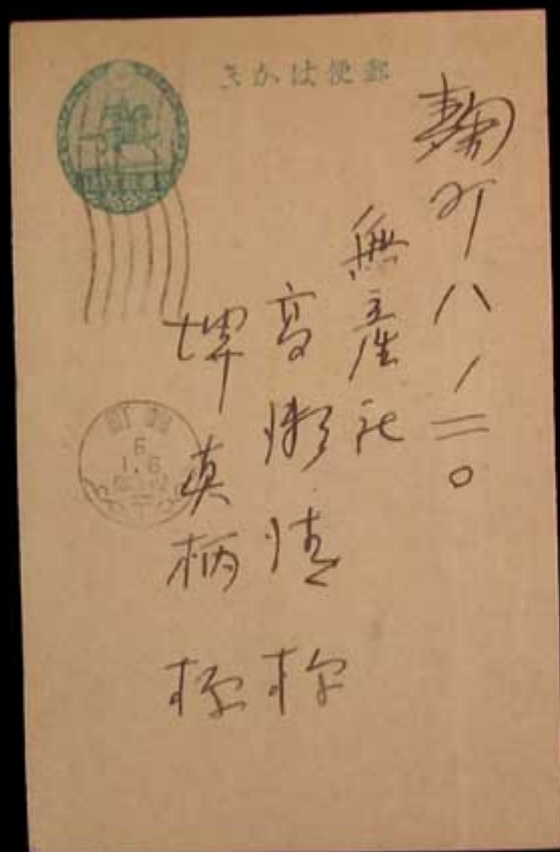 郵便はかき
麹町八ノ二〇
無産社
高瀬清様
堺真柄様
麹町
6
1.6